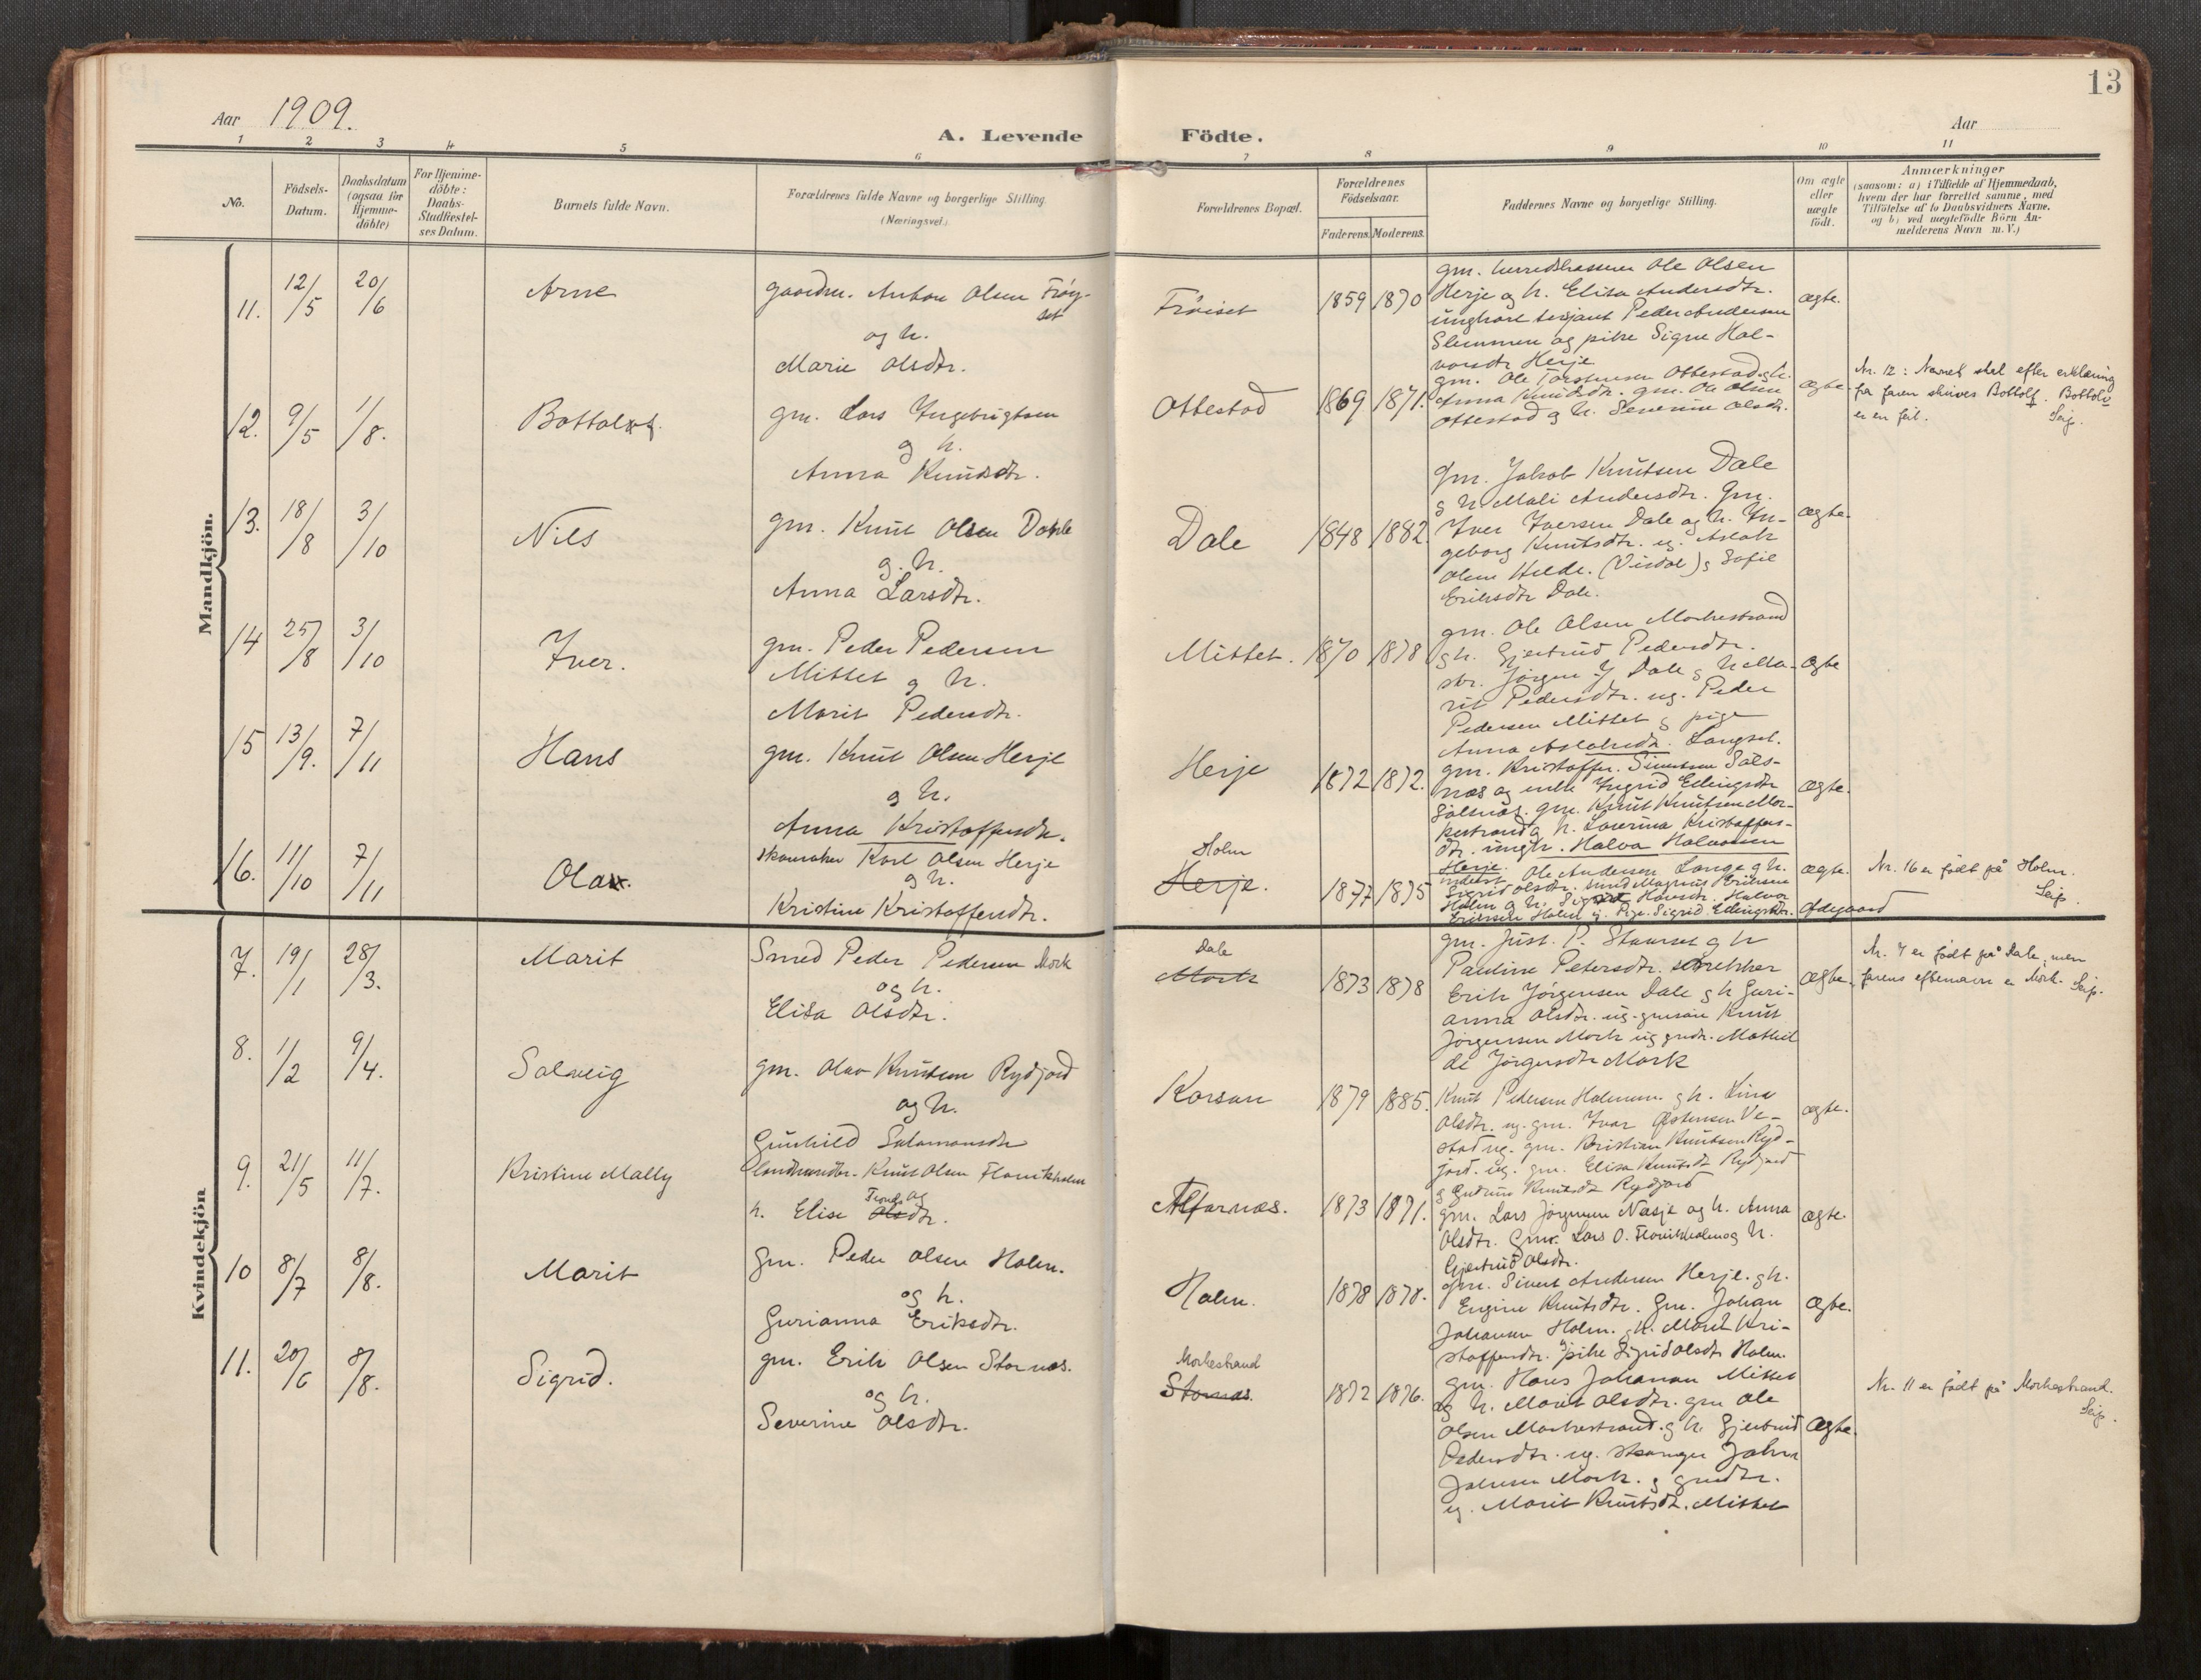 13
Aar 1909.
A. Levende Födte.
Aar
1 2 3 4 5 6 7 8 9 10 11
No.
Födsels-Datum.
Daabsdatum (ogsaa for Hjemme-döbte)
For Hjemme-döbte: Daabs-Stadfæstel-ses Datum.
Barnets fulde Navn.
Forældrenes fulde Navne og borgerlige Stilling. (Næringsvei.)
Forældrenes Bopæl.
Forældrenes Födselsaar.
Faderens. Moderens.
Faddernes Navne og borgerlige Stilling.
Om ægte eller uægte födt.
Anmærkninger
(saasom: a) i Tilfælde af Hjemmedaab,
hvem der har forrettet samme, med
Tilföielse af to Daabsvidners Navne.
og b) ved uægtefödte Börn An-
melderens Navn m. V.)
Mandkjön.
11. 12/5 20/6 Arne
gaardm. Anton Olsen Frøy-
set
og h.
Marie Olsdtr.
Frøiset 1859 1870
gm. herredskasserer Ole Olsen
Herje og h. Elisa Andersdtr.
ungkarl serjant Peder Andersen
Slemmen og pike Signe Hal-
vorsdtr Herje
ægte.
12. 9/5 1/8. Bottolf.
gm. Lars Ingebrigtsen
og h.
Anna Knudsdtr.
Ottestad 1869 1871.
gm. Ole Torstensen Ottestad og h.
Anna Knudsdtr. gm. Ole Olsen
Ottestad og h. Severine Olsdtr.
ægte.
Nr. 12: Navnet skal efter erklæring
fra faren skrives Bottolf. Bottolv
er en feil. Seip.
13. 18/8 3/10 Nils
gm. Knut Olsen Dale
g. h.
Anna Larsdtr.
Dale 1848 1882
Gm. Jakob Knutsen Dale
g h. Mali Andersdtr. Gm.
Iver Iversen Dale og h. In-
geborg Knutsdtr. ug. Aslak
Olsen Hilde. (Visdal) g Sofie
Eriksdtr Dale.
ægte.
14 25/8 3/10 Iver.
gm. Peder Pedersen
Mittet g h.
Marit Pedersdtr.
Mittet. 1870 1878
gm. Ole Olsen Morkestrand
g h. Gjertrud Pedersdtr.
skr. Jørgen J Dale g h Ma-
rit Pedersdtr. ug. Peder
Pedersen Mittet g pige
Anna Aslaksdtr. Langset.
ægte
15 13/9. 7/11 Hans
gm. Knut Olsen Herje
g h.
Anna Kristoffersdtr.
Herje 1872 1872.
gm. Kristoffer Simensen Sols-
næs og enke Ingrid Erlingsdtr
Solsnæs. gm. Knut Knutsen Mor-
kestrand g h. Laverina Kristoffers-
dtr. ungk. Halva Halvorsen
Herje.
ægte.
16. 11/10 7/11 Ola.
skomaker Karl Olsen Herje
g h.
Kristine Kristoffersdtr.
Holm
Herje. 1877 1875
Ole Andersen Lange g h.
Sigrid Olsdtr. smed Magnus Eriksen
Holm g h. Sigrid Halvorsdtr. Halvor
Eriksen Holm g. Pige Sigrid Erlingsdtr. Ødegaard
ægte.
Nr. 16 er født på Holm.
Seip.
Kvindekjön
7. 19/1 28/3. Marit
Smed Peder Pedersen Mork
og h.
Elisa Olsdtr.
Dale
Mork 1873 1878
gm. Just. P. Staurset g h
Pauline Petersdtr. snekker
Erik Jørgensen Dale g h Guri-
anna Olsdtr. ug. gmsøn Knut
Jørgensen Mork ug gmdtr. Mathil
de Jørgensdtr Mork
Ægte.
Nr. 7 er født på Dale, men
farens efternavn er Mork. Seip.
8. 1/2 9/4. Solveig
gm. Olav Knutsen Rydjord
og h.
Gunhild Salamonsdtr
Korsan 1879 1885.
Knut Pedersen Holmem. g h. Lina
Olsdtr. ug. gm. Ivar Østensen Ve-
stad ug. gm. Kristian Knutsen Ryd-
jord. ug. gm. Elisa Knutsdtr Rydjord
g Gudrun Knutsdtr Rydjord
ægte.
9. 21/5 11/7. Kristine Mally
landhandler. Knut Olsen Flovikholm
og
h. Elise Trondsdtr.
Alfarnæs. 1873 1871.
gm. Lars Jørgensen Nesje og h. Anna
Olsdtr. Gm. Lars O. Flovikholm og h.
Gjertrud Olsdtr.
ægte.
10 8/7 8/8. Marit
Gm. Peder Olsen Holm.
og h.
Gurianna Eriksdtr.
Holm. 1878 1878.
gm. Sivert Andersen Herje. g h.
Engine Knutsdtr. Gm. Johan
Johansen Holm. g h. Marit Kri-
stoffersdtr. g pike Sigrid Olsdtr Holm.
Ægte.
11. 20/6 8/8. Sigrid.
gm. Erik Olsen Stornæs.
og h.
Severine Olsdtr.
Morkestrand
Stornæs. 1872 1876.
gm. Hans Johansen Mittet
og h. Marit Olsdtr. gm Ole
Olsen Morkestrand. g h. Gjertrud
Pedersdtr. ug. John
Johnsen Mork. g gmdtr.
ug. Marit Knutsdtr. Mittet
Ægte.
Nr. 11 er født på Morkestrand.
Seip.